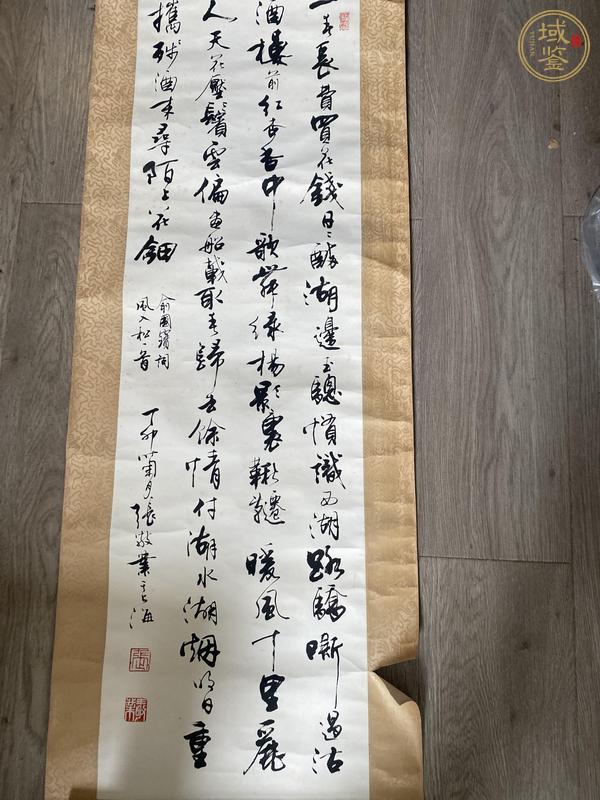 一春長費買花錢日々醉湖邊玉驄慣識西湖路驕嘶過沽
酒樓前紅杏香中歌舞綠楊影裏鞦韆暖風十里麗
人天花壓鬢雲偏畫船載取春歸去餘情付湖水湖烟明日重
攜殘酒來尋陌上花鈿
俞國寶詞
風入松一首
丁卯菊月張敬業上海
域鉴
YUJIAN